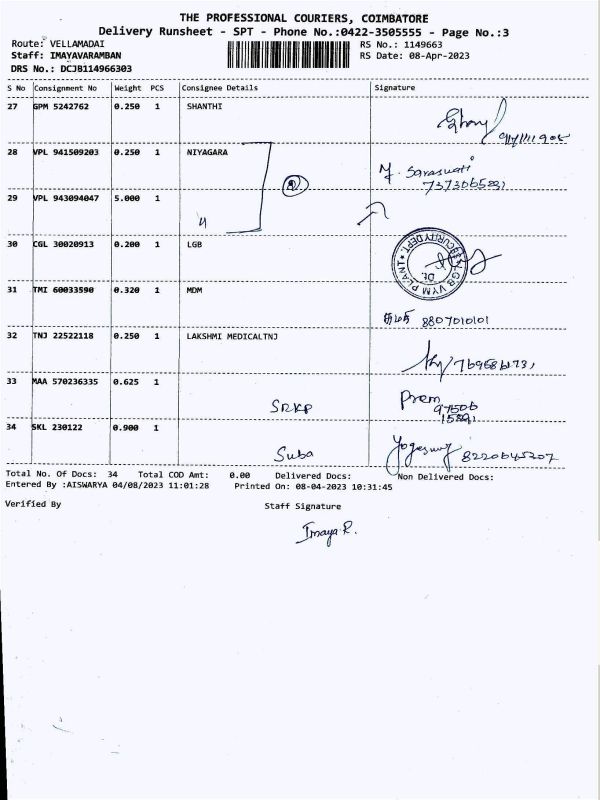 THE PROFESSIONAL COURIERS, COIMBATORE
Delivery Runsheet - SPT - Phone No.:0422-3505555 - Page No.:3
Route: VELLAMADAI RS No.: 1149663
Staff: IMAYAVARAMBAN RS Date: 08-Apr-2023
DRS No.: DCJB114966303
S No Consignment No Weight PCS Consignee Details Signature
27 GPM 5242762 0.250 1 SHANTHI
28 VPL 941509203 0.250 1 NIYAGARA
M. Saraswati
29 VPL 943094047 5.000 1
30 CGL 30020913 0.200 1 LGB
31 TMI 60033590 0.320 1 MDM
8807010101
32 TNJ 22522118 0.250 1 LAKSHMI MEDICALTNJ
33 MAA 570236335 0.625 1
SRKP Prem
34 SKL 230122 0.900 1
Suba
Total No. Of Docs: 34 Total COD Amt: 0.00 Delivered Docs: Non Delivered Docs:
Entered By :AISWARYA 04/08/2023 11:01:28 Printed On: 08-04-2023 10:31:45
Verified By Staff Signature
Imaya R.